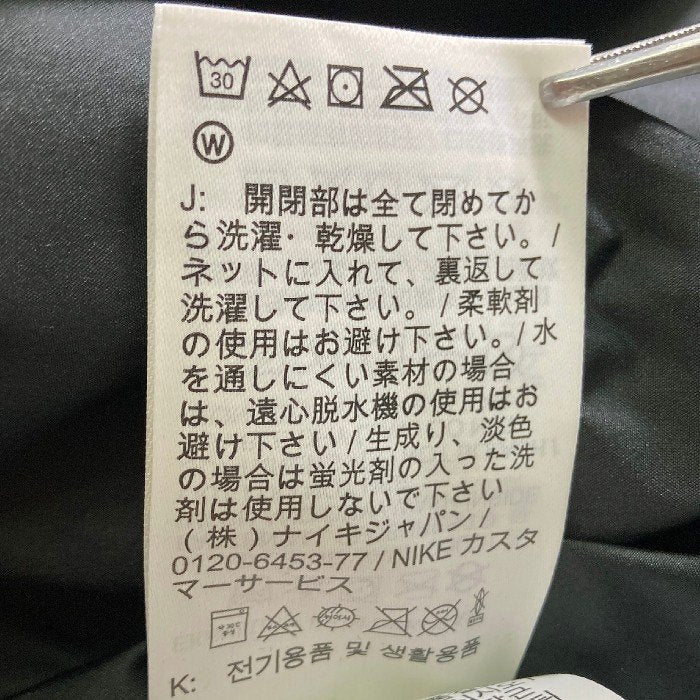 30
W
J: 開閉部は全て閉めてか
ら洗濯・乾燥して下さい。/
ネットに入れて、裏返して
洗濯して下さい。/柔軟剤
の使用はお避け下さい。/水
を通しにくい素材の場合
は、遠心脱水機の使用はお
避け下さい/生成り、淡色
の場合は蛍光剤の入った洗
剤は使用しないで下さい
(株)ナイキジャパン/
0120-6453-77/NIKEカスタ
マーサービス
K: 전기용품 및 생활용품